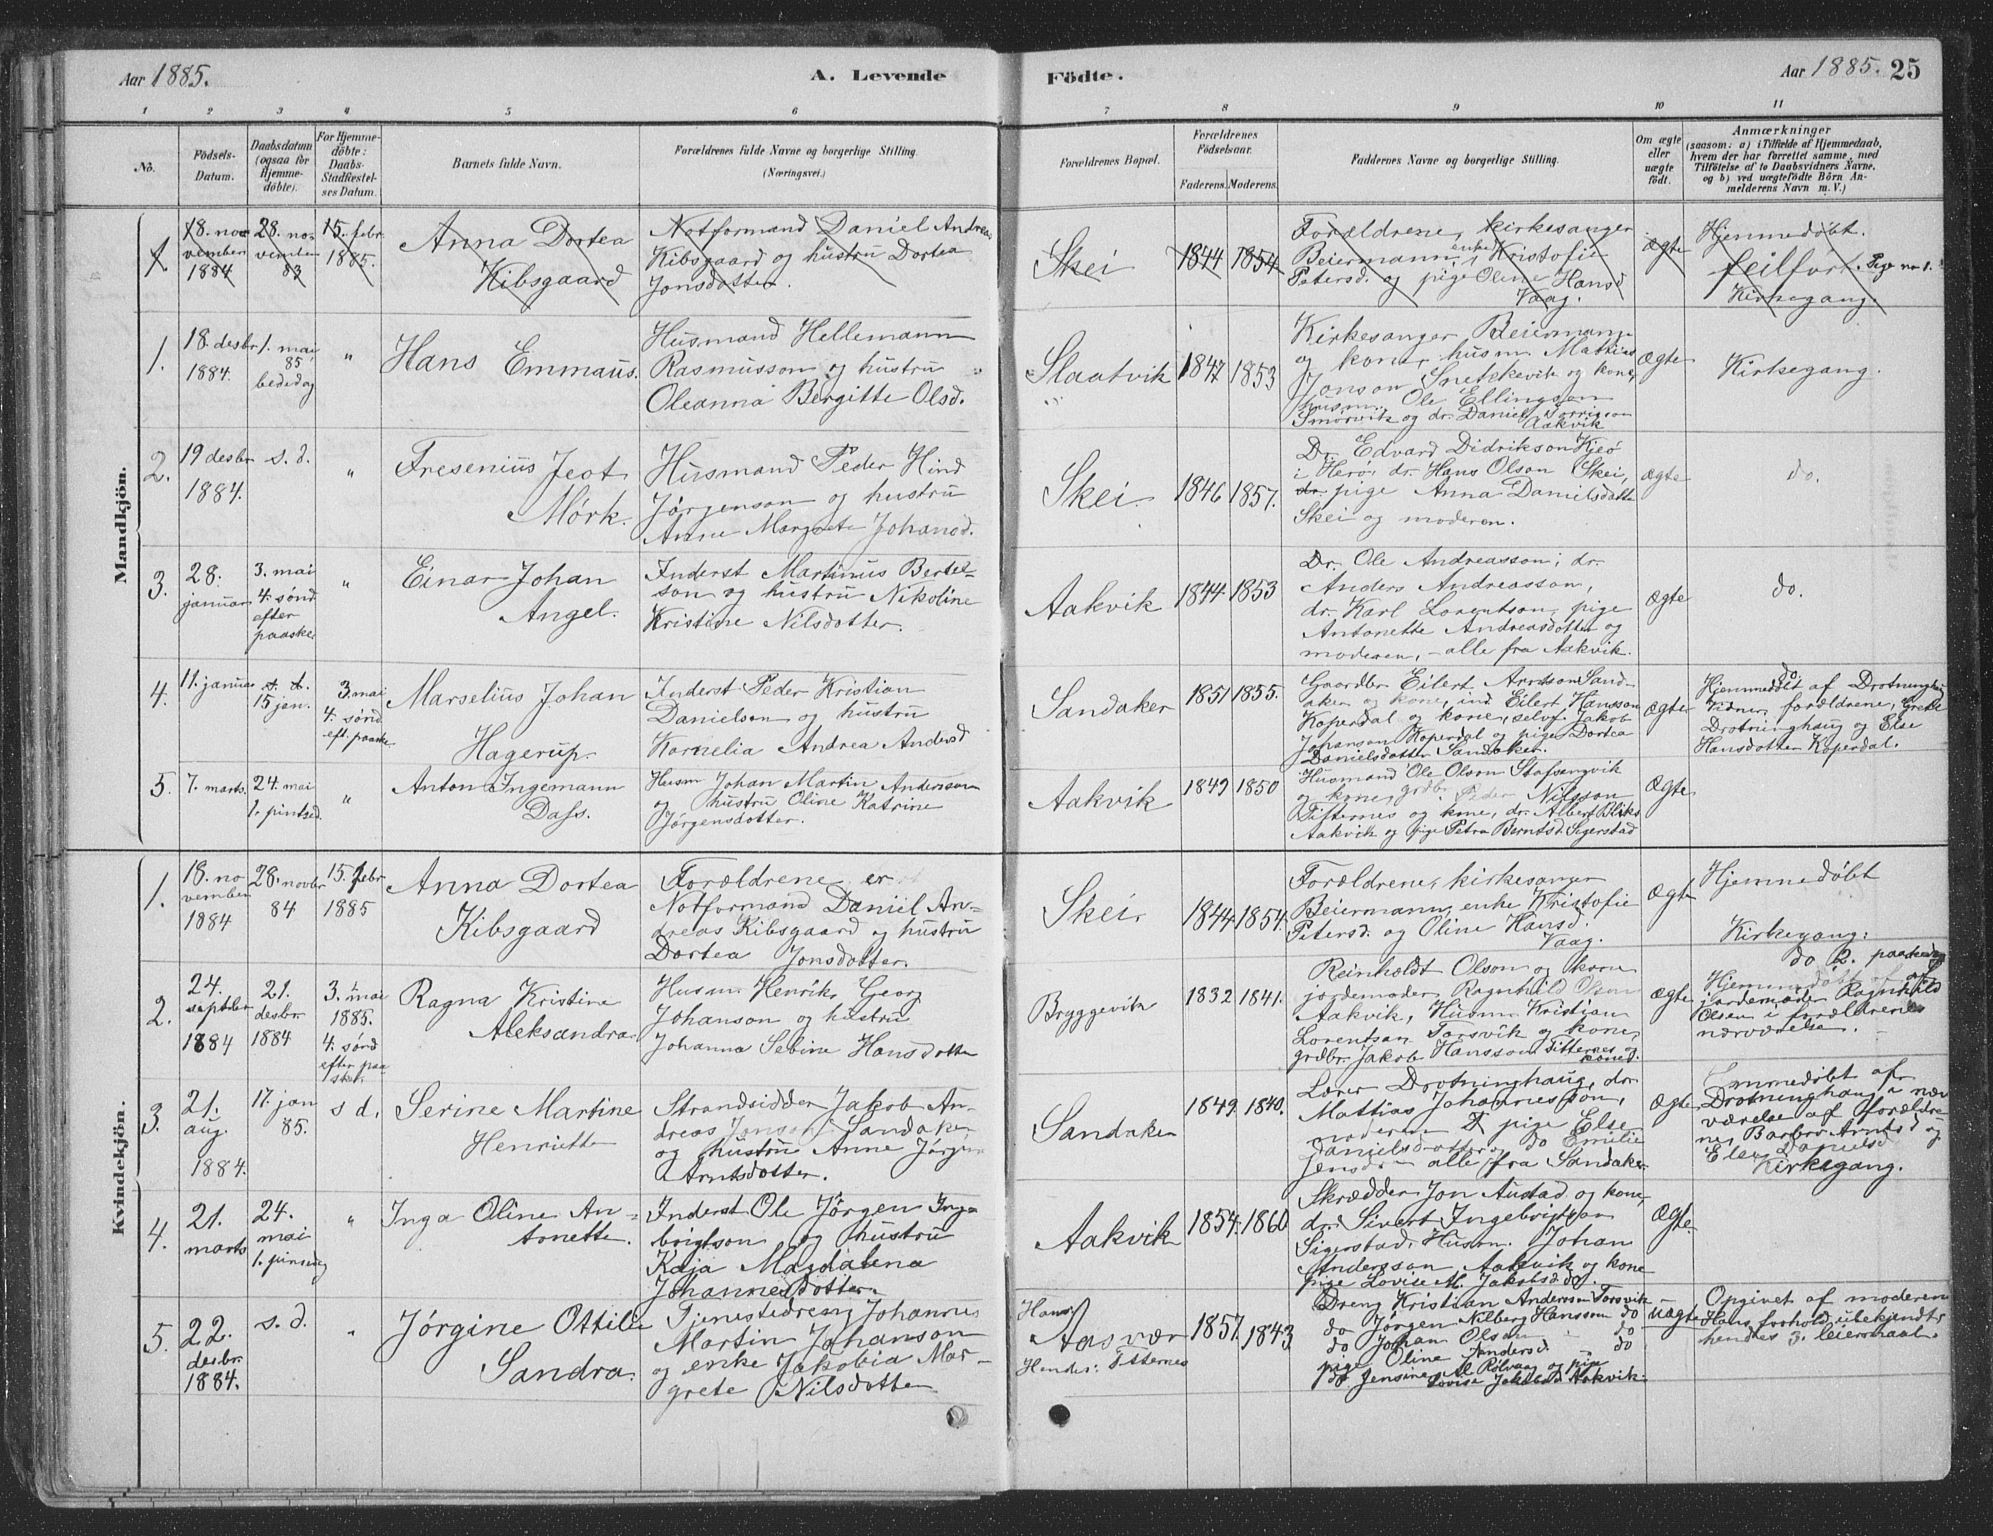 Aar 1885.
A. Levende
Födte.
Aar 1885. 25
1 2 3 4 5 6 7 8 9 10 11
No.
Födsels-
Datum.
Daabsdatum
(ogsaa for
Hjemme-
döbte).
For Hjemme-
döbte:
Daabs-
Stadfæstel-
ses Datum.
Barnets fulde Navn.
Forældrenes fulde Navne og borgerlige Stilling.
(Næringsvei.)
Forældrenes Bopæl.
Forældrenes
Födselsaar.
Faderens. Moderens.
Faddernes Navne og borgerlige Stilling.
Om ægte
eller
uægte
födt.
Anmærkninger
(saasom: a) i Tilfælde af Hjemmedaab,
hvem der har forrettet samme, med
Tilföielse af to Daabsvidners Navne,
og b) ved uægtefödte Börn An-
melderens Navn m. V.)
Mandkjön.
1.
18. no-
vember
1884
28. no-
vember
83
15. febr.
1885.
Anna Dortea
Kibsgaard
Notformand Daniel Andreas
Kibsgaard og hustru Dortea
Jonsdotter.
Skei
1844 1854
Forældrene, kirkesanger
Beiermann, enke Kristofie
Petersd. og pige Oline Hansd
Vaag.
ægte
Hjemmedøbt.
feilført. Pige no 1.
Kirkegang.
1.
18. desbr
1884.
1. mai
85
bededag
"
Hans Emmaus.
Husmand Hellemann
Rasmusson og hustru
Oleanna Bergitte Olsd.
Slaatvik
1847 1853
Kirkesanger Beiermann
og kone, husm. Mattias
Jonson Snekkevik og kone,
husm. Ole Ellingson
Smørvik og dr. Daniel
Aakvik
Ægte
Kirkegang.
2.
19 desbr
1884.
s. d.
"
Fresenius Jeot
Mørk.
Husmand Peder Hind
Jørgenson og hustru
Anne Margrete Johansd.
Skei.
1846 1857.
Dr. Edvard Didrikson Kjeø
i Herø, dr. Hans Olson Skei,
dr. pige Anna Danielsdotter
Skei og moderen.
Ægte
do.
3.
28.
januar
3. mai
4. sønd
efter
paaske.
"
Einar Johan
Angel.
Inderst Martinus Bertel-
son og hustru Nikoline
Kristine Nilsdotter.
Aakvik
1844 1853
Dr. Ole Andreasson; dr.
Anders Andreasson,
dr. Karl Lorentson, pige
Antonette Andreasdotter og
moderen, - alle fra Aakvik.
Ægte
do.
4.
11. januar
s. d.
15 jan.
3. mai
4. sønd
eft. paaske
Marselius Johan
Hagerup.
Inderst Peder Kristian
Danielson og hustru
Kornelia Andrea Andersd
Sandaker
1851 1855.
Gaardbr Eilert Arntson Sand-
aker og kone, ind Eilert Hansson
Koperdal og kone, selvf. Jakob
Johanson Koperdal og pige Dortea
Danielsdotter Sandaker.
Ægte
do.
Hjemmedøbt af Drotninghaug
Vidner, forældrene, Grete
Drotninghaug og Else
Hansdotter Koperdal.
5.
7. marts.
24. mai
1. pintsed.
"
Anton Ingemann
Dass.
Husm Johan Martin Andersson
og hustru Oline Katrine
Jørgensdotter.
Aakvik
1849 1850
Husmand Ole Olson Stafsengvik
og kone, grdbr. Peder Nilsson
Titternes og kone, dr. Albert Bliks
Aakvik og pige Petra Berntsd. Sigerstad
Ægte
Kvindekjön.
1.
18. no
vember
1884
28. novbr
84
15 febr
1885
Anna Dortea
Kibsgaard
Forældrene er
Notformand Daniel An-
dreas Kibsgaard og hustru
Dortea Jonsdotter.
Skei.
1844 1854.
Forældrene, kirkesanger
Beiermann, enke Kristofie
Petersd. og Oline Hansd.
Vaag.
Ægte
Hjemmedøbt
Kirkegang.
2.
24.
septbr
1884
21.
desbr.
1884
3. mai
1885.
4. sønd
efter paa
ske.
Ragna Kristine
Aleksandra.
Husm Henrik Georg
Johanson og hustru
Johanna Sebine Hansdotter
Bryggevik
1832 1841.
Reinholdt Olson og kone
jordemoder Ragnhild Olsen
Aakvik, Husm Kristian
Lorentsan Torsvik og kone,
grdbr. Jakob Hansson Titternes og
kone.
Ægte
do 2. paaskedag
Hjemmedøbt af
jordemoder Ragnhild
Olsen i forældrenes
nærværelse.
3.
21.
aug.
1884.
17. jan
85.
s d.
Serine Martine
Henriette
Strandsidder Jakob An-
dreas Jonson Sandaker
og hustru Anne Jørgine
Arntsdotter.
Sandaker
1849. 1840.
Lærer Drotninghaug, dr.
Mattias Johannesson,
moderen pige Else
Danielsdotter og do Emilie
Jensd. - alle fra Sandaker.
Ægte
Hjemmedøbt af
Drotninghaug i nær
værelse af forældre-
ne, Barbro Arntsd og
Elen Danielsd
Kirkegang.
4.
21.
marts
24.
mai
1. pinsedag
"
Inga Oline An-
tonette.
Inderst Ole Jørgen Inge
brigtson og hustru
Kaja Magdalena
Johannesdotter.
Aakvik
1854. 1860
Skrædder Jon Austad og kone,
dr. Sivert Ingebrigtson
Sigerstad, Husm. Johan
Andersson Aakvik og kone
pige Lovise M. Jakobsd. do.
Ægte
5.
22.
desbr.
1884.
s. d.
"
Jørgine Ottilie
Sandra.
Tjenestedreng Johannes
Martin Johanson
og enke Jakobia Mar-
grete Nilsdotter
Hans:
Aasvær
Hendes: Titternes
1857. 1843
Dreng Kristian Andersson Torsvik
do Jørgen Nilberg Hansson do
do Johan Olson do
pige Oline Andersd. do
do Jensine M. Rølvaag og pige
Lovise Jakobsd Aakvik.
Uægte
Opgivet af moderen
Hans forhold ubekjendt,
hendes 3. leiermaal.